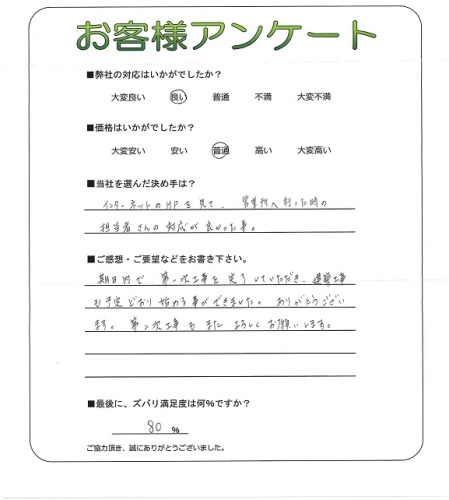 お客様アンケート
■弊社の対応はいかがでしたか？
大変良い 良い 普通 不満 大変不満
■価格はいかがでしたか？
大変安い 安い 普通 高い 大変高い
■当社を選んだ決め手は？
インターネットのHPを見て、営業所へ行った時の
担当者さんの対応が良かった事。
■ご感想・ご要望などをお書き下さい。
期日内で第一次工事を完了していただき、建築工事
も予定どおり始める事ができました。ありがとうござい
ます。第二次工事もまたよろしくお願いします。
■最後に、ズバリ満足度は何%ですか？
80 %
ご協力頂き、誠にありがとうございました。